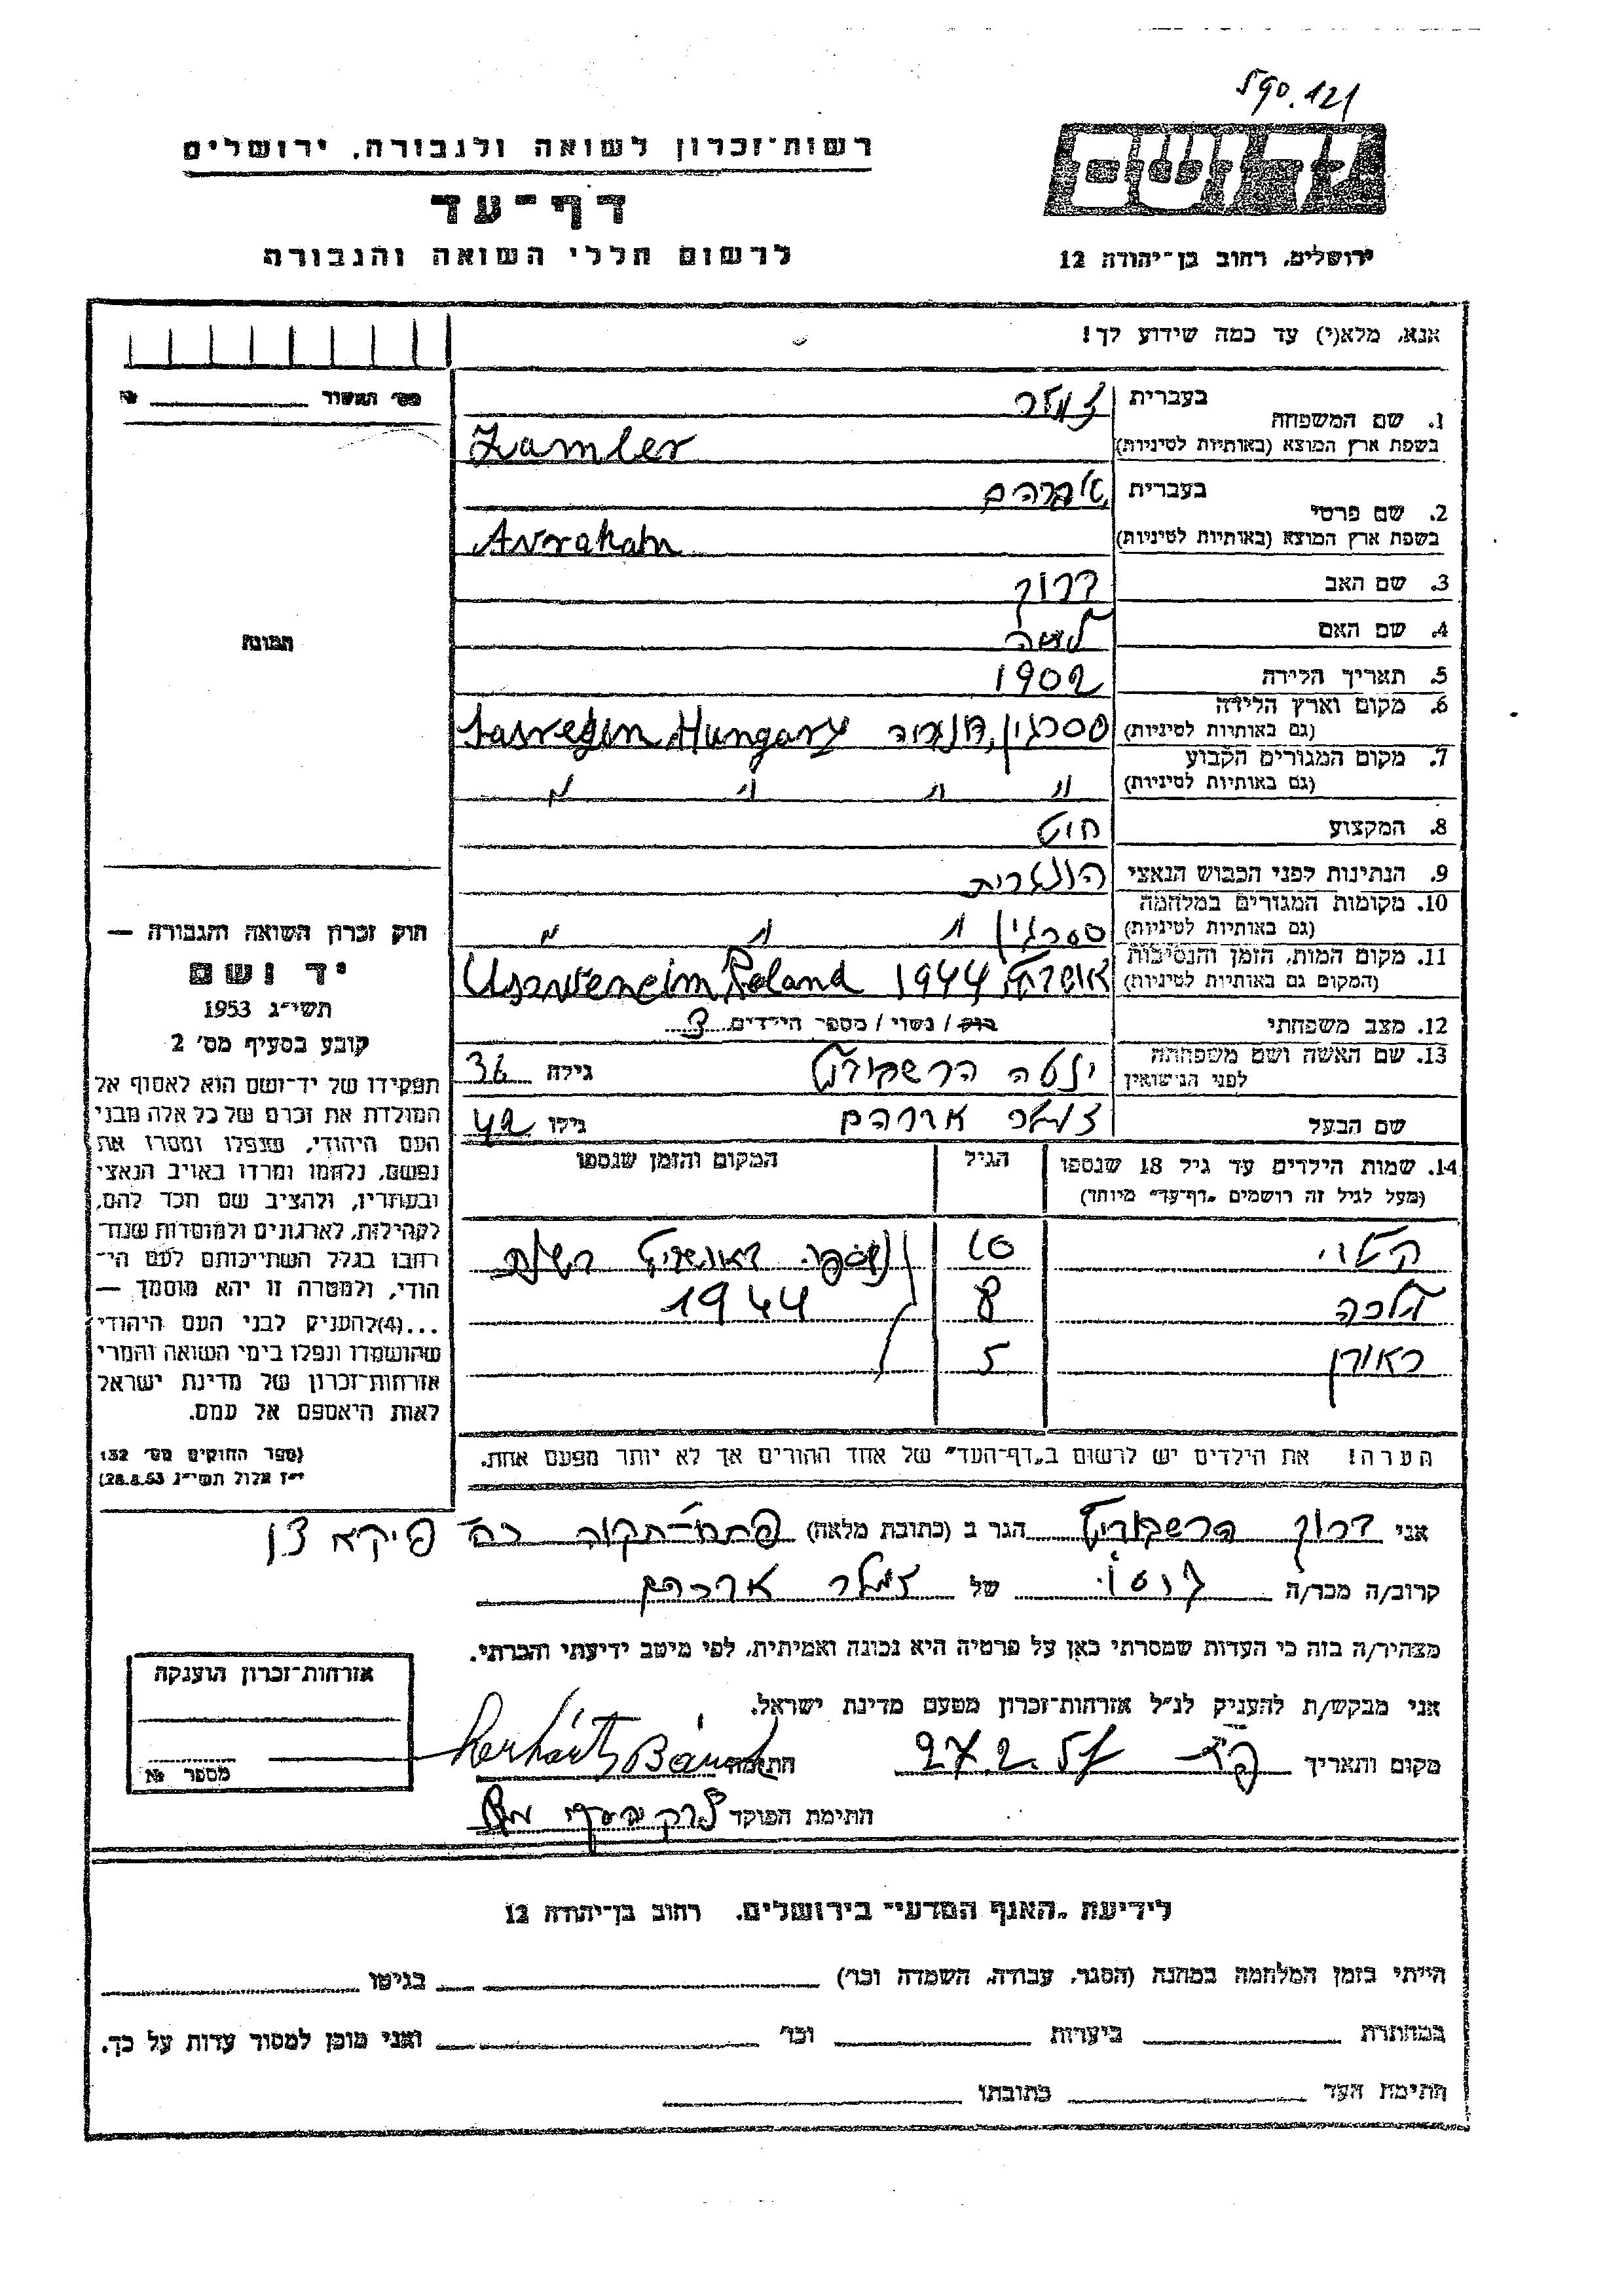 590.121
יד ושם
רשות־זכרון לשואה ולגבורה, ירושלים
דף־עד
לרשום חללי השואה והגבורה
ירושלים, רחוב בן־יהודה 12
אנא, מלא(י) עד כמה שידוע לך!
מס׳ האשור № 
1. שם המשפחה
בעברית
בשפת ארץ המוצא (באותיות לטיניות)
Zamler
2. שם פרטי
בעברית אברהם
בשפת ארץ המוצא (באותיות לטיניות) Avraham
3. שם האב ברוך
4. שם האם
5. תאריך הלידה 1902
6. מקום וארץ הלידה
(גם באותיות לטיניות) ססרגין, Hungary
7. מקום המגורים הקבוע
(גם באותיות לטיניות) " " " "
8. המקצוע חיט
9. הנתינות לפני הכבוש הנאצי הונגרית
10. מקומות המגורים במלחמה
(גם באותיות לטיניות) ססרגין " " "
11. מקום המות, הזמן והנסיבות
(המקום גם באותיות לטיניות) 1944 Poland
12. מצב משפחתי רוק / נשוי / מספר הילדים 3
13. שם האשה ושם משפחתה
לפני הנישואין הרשקוביץ גילה 36
שם הבעל אברהם גילו 42
14. שמות הילדים עד גיל 18 שנספו
(מעל לגיל זה רושמים „דף־עד״ מיוחד)
הגיל
המקום והזמן שנספו
10 נספו באושויץ בשנת
8 1944
5
הערה! את הילדים יש לרשום ב„דף־העד״ של אחד ההורים אך לא יותר מפעם אחת.
תמונה
חוק זכרון השואה והגבורה —
יד ושם
תשי״ג 1953
קובע בסעיף מס׳ 2
תפקידו של יד־ושם הוא לאסוף אל
המולדת את זכרם של כל אלה מבני
העם היהודי, שנפלו ומסרו את
נפשם, נלחמו ומרדו באויב הנאצי
ובעוזריו, ולהציב שם וזכר להם,
לקהילות, לארגונים ולמוסדות שנח־
רבו בגלל השתייכותם לעם הי־
הודי, ולמטרה זו יהא מוסמך —
...(4)להעניק לבני העם היהודי
שהושמדו ונפלו בימי השואה והמרי
אזרחות־זכרון של מדינת ישראל
לאות היאספם אל עמם.
(ספר החוקים מס׳ 132
י״ז אלול תשי״ג 28.8.53)
אני ברוך הרשקוביץ הגר ב (כתובת מלאה) פתח־תקוה
קרוב/ה מכר/ה גיסו של אברהם
מצהיר/ה בזה כי העדות שמסרתי כאן על פרטיה היא נכונה ואמיתית, לפי מיטב ידיעתי והכרתי.
אני מבקש/ת להעניק לנ״ל אזרחות־זכרון מטעם מדינת ישראל.
מקום ותאריך 27.2.57 חתימה
חתימת הפוקד
אזרחות־זכרון הוענקה
מספר №
לידיעת „האגף המדעי״ בירושלים, רחוב בן־יהודה 12
הייתי בזמן המלחמה במחנה (הסגר, עבודה, השמדה וכו׳) בגיטו
במחתרת ביערות וכו׳ ואני מוכן למסור עדות על כך.
חתימת העד כתובתו